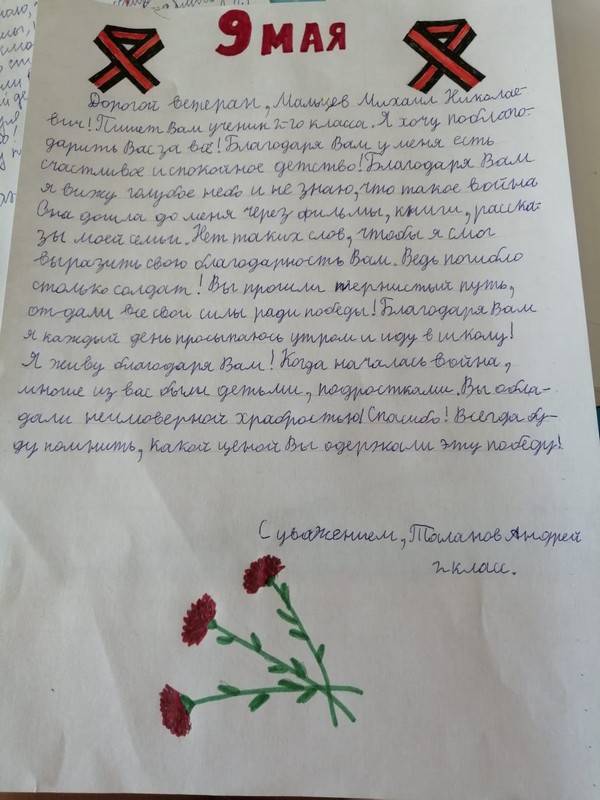 9 МАЯ
Дорогой ветеран, Мальцев Михаил Николае-
вич! Пишет Вам ученик 2-го класса. Я хочу поблаго-
дарить Вас за всё! Благодаря Вам у меня есть
счастливое и спокойное детство! Благодаря Вам
я вижу голубое небо и не знаю, что такое война
Она дошла до меня через фильмы, книги, расска-
зы моей семьи. Нет таких слов, чтобы я смог
выразить свою благодарность Вам. Ведь погибло
столько солдат! Вы прошли тернистый путь,
отдали все свои силы ради победы! Благодаря Вам
я каждый день просыпаюсь утром и иду в школу!
Я живу благодаря Вам! Когда началась война,
многие из вас были детьми, подростками. Вы обла-
дали неимоверной храбростью! Спасибо! Всегда бу-
ду помнить, какой ценой Вы одержали эту победу!
С уважением, Таланов Андрей
2 класс.